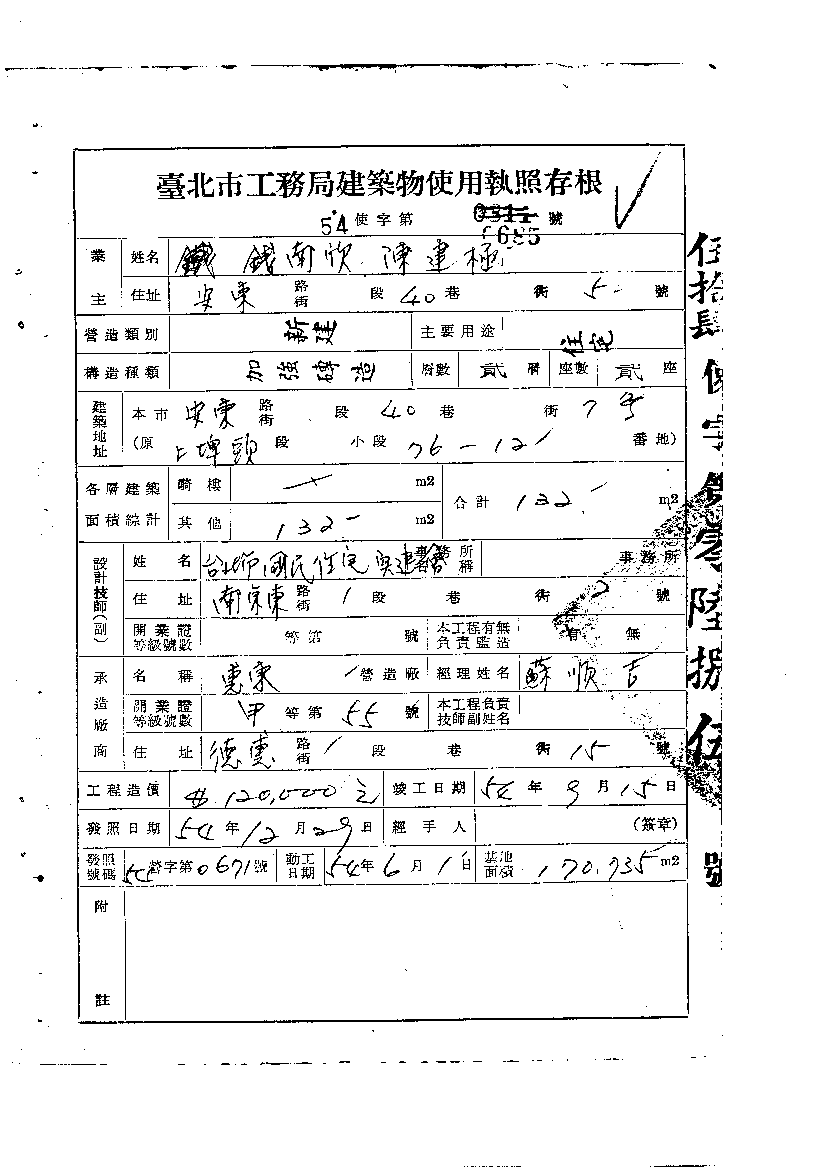 臺北市工務局建築物使用執照存根
54使字第 0685 號
業主 姓名 錢南欣 陳建極
住址 安東 路街 段 40巷 街 5 號
營造類別 新建 主要用途 住宅
構造種類 加強磚造 層數 貳層 座數 貳座
建築地址 本市 安東 路街 段 40巷 街 7号
(原 上埤頭 段 小段 76-12 番地)
各層建築面積綜計 騎樓 m2 合計 132 m2
其他 132 m2
設計技師(副) 姓名 台北市國民住宅興建會 事務所名稱 事務所
住址 南京東 路街 1段 巷 街 2 號
開業證等級號數 等第 號 本工程有無負責監造 有 無
承造廠商 名稱 惠東 營造廠 經理姓名 蘇順吉
開業證等級號數 甲等第 55 號 本工程負責技師副姓名
住址 德惠 路街 1段 巷 街 15 號
工程造價 $120,000元 竣工日期 54年9月15日
發照日期 54年12月29日 經手人 (簽章)
發照號碼 54營字第0671號 動工日期 54年6月1日 基地面積 170.735 m2
附註
伍拾肆使字第零陸捌伍號